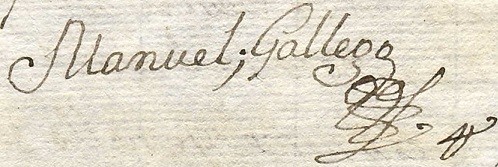 Manuel; Gallego